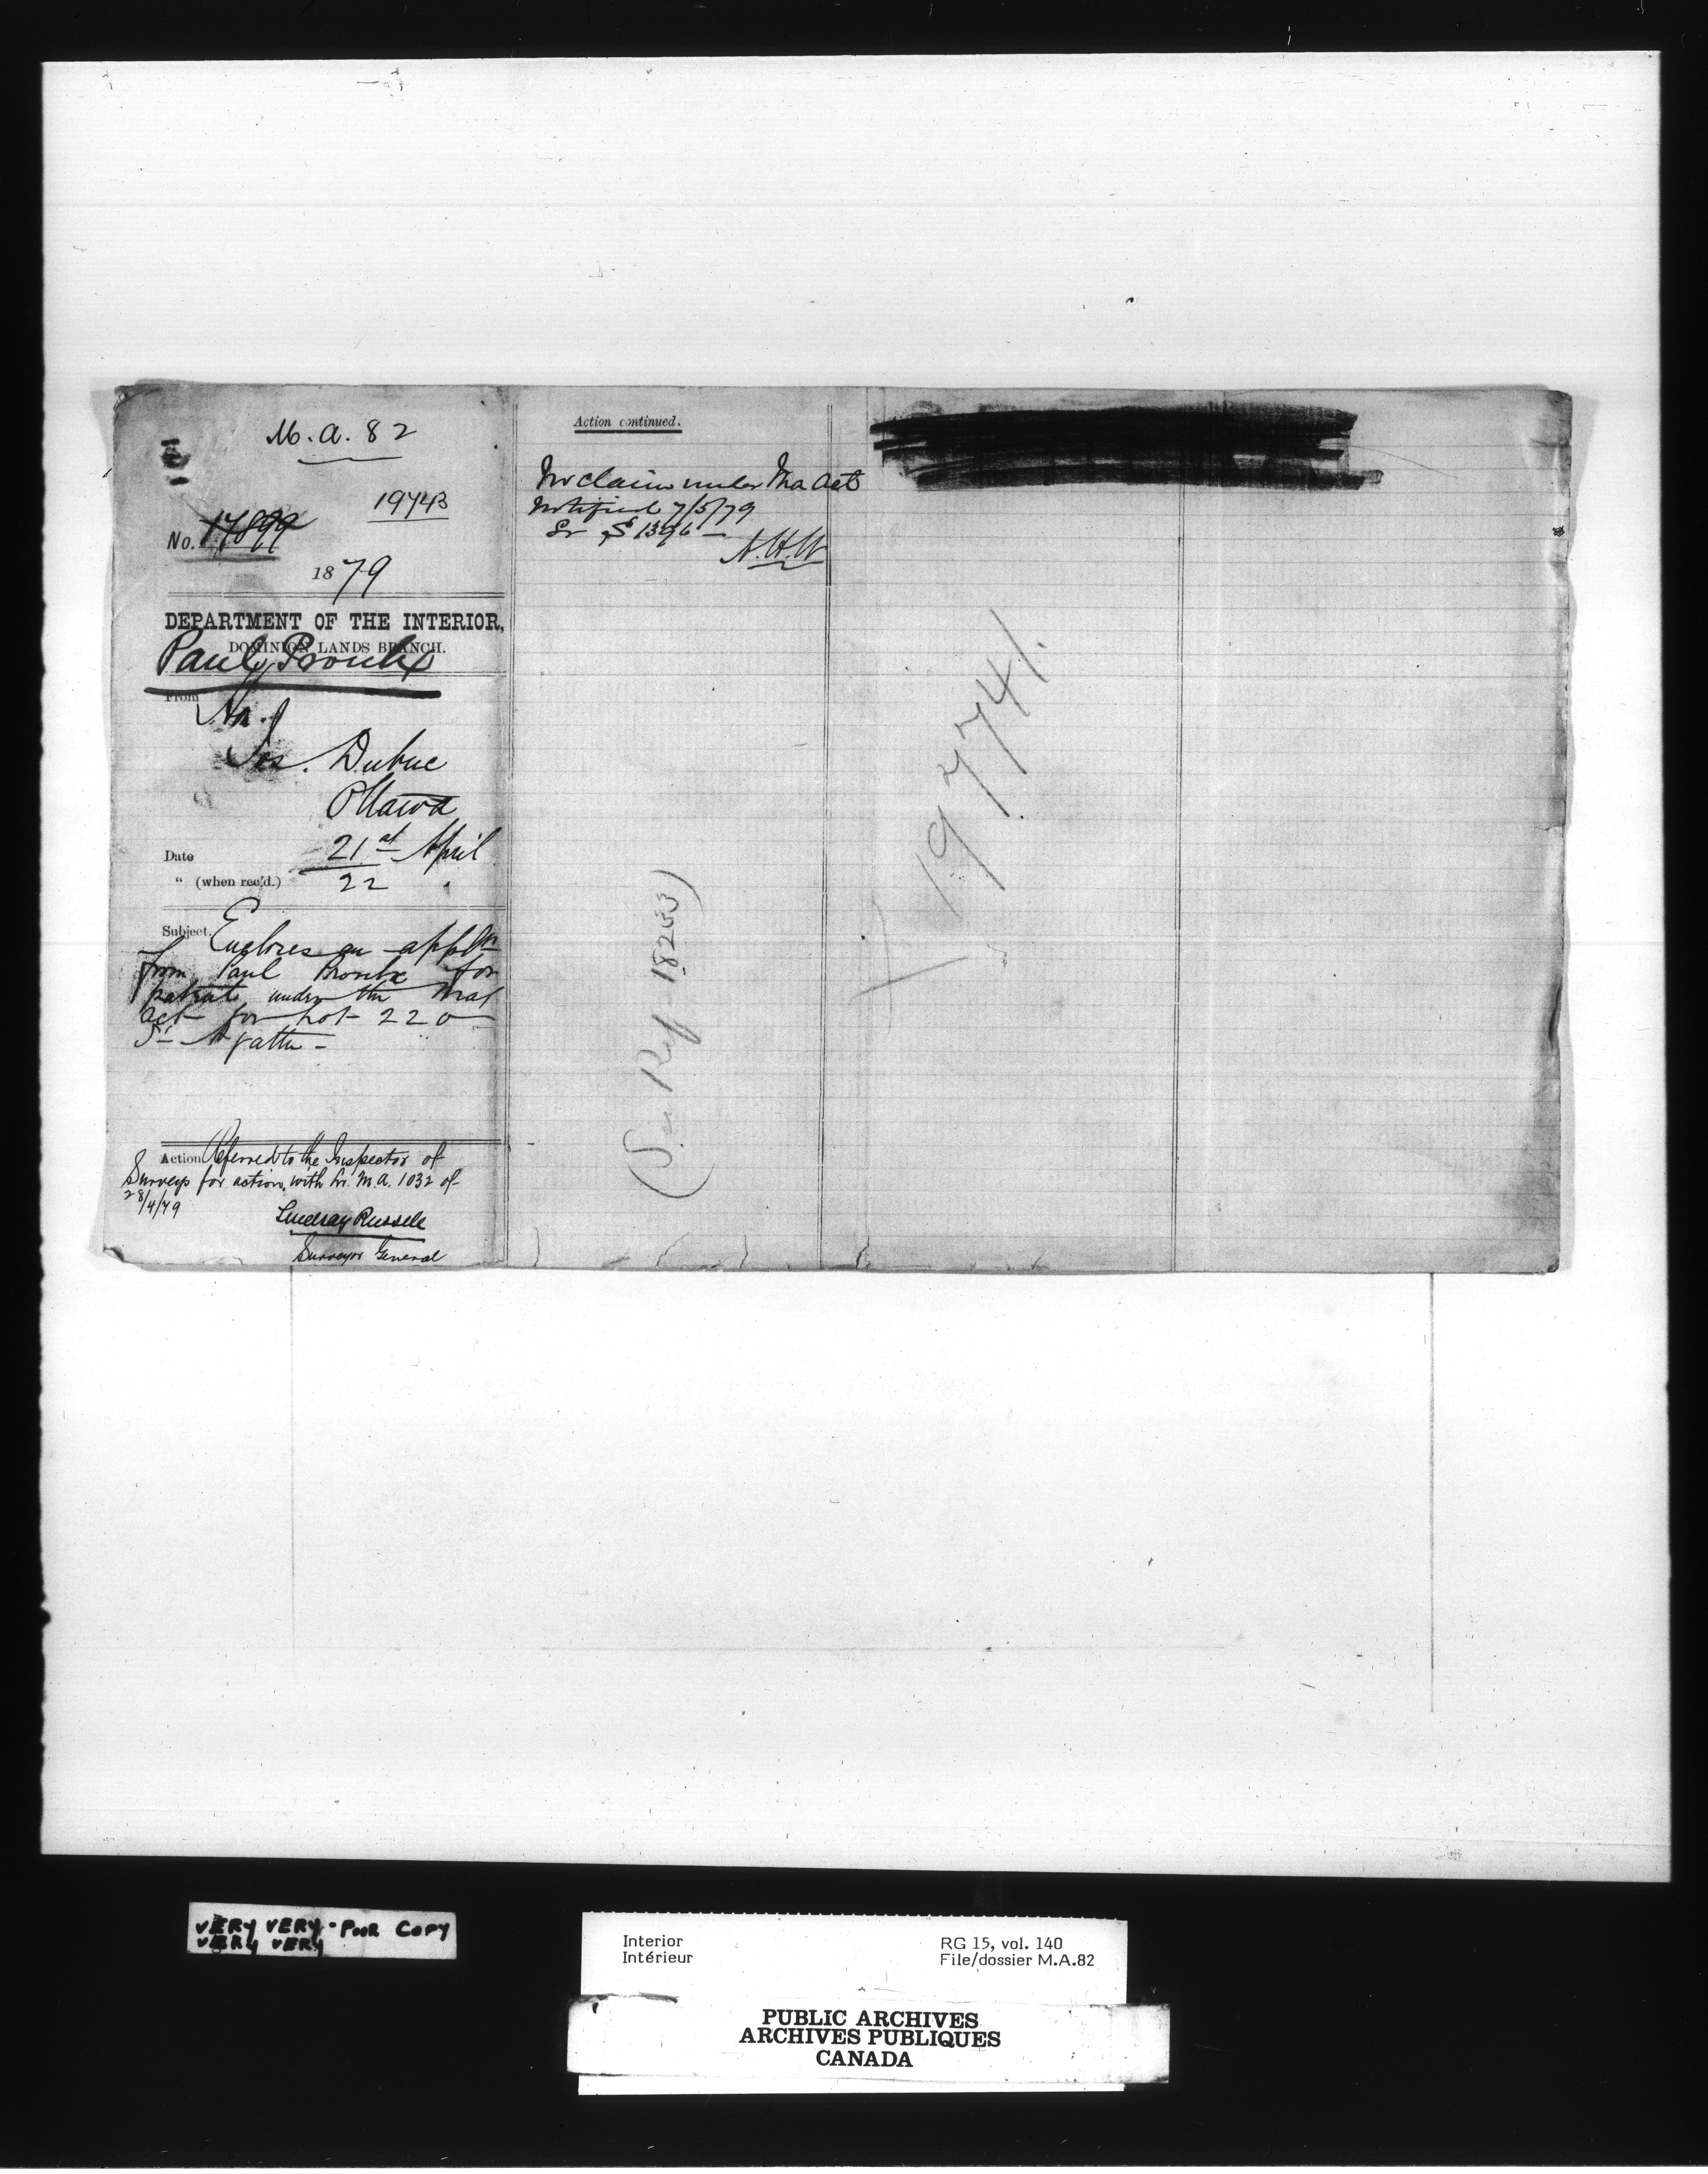 M.A. 82
19743
No. 17899
1879
DEPARTMENT OF THE INTERIOR,
DOMINION LANDS BRANCH.
Paul Proulx
From
Jos. Dubuc
Ottawa
Date 21st April
" (when rec'd.) 22 "
Subject. Encloses an applon
from Paul Proulx for
patent under the Man
act for Lot 220
St Agathe -
Action Referred to the Inspector of
Surveys for action, with Lr. M.A. 1032 of
28/4/79
Lindsay Russell
Surveyor General
Action continued.
No claim under Ma Act
Notified 7/5/79
Lr $ 1396 -
A.H.W
(See Ref 18233)
19741.
VERY VERY - POOR COPY
VERY VERY
Interior
Intérieur
RG 15, vol. 140
File/dossier M.A.82
PUBLIC ARCHIVES
ARCHIVES PUBLIQUES
CANADA